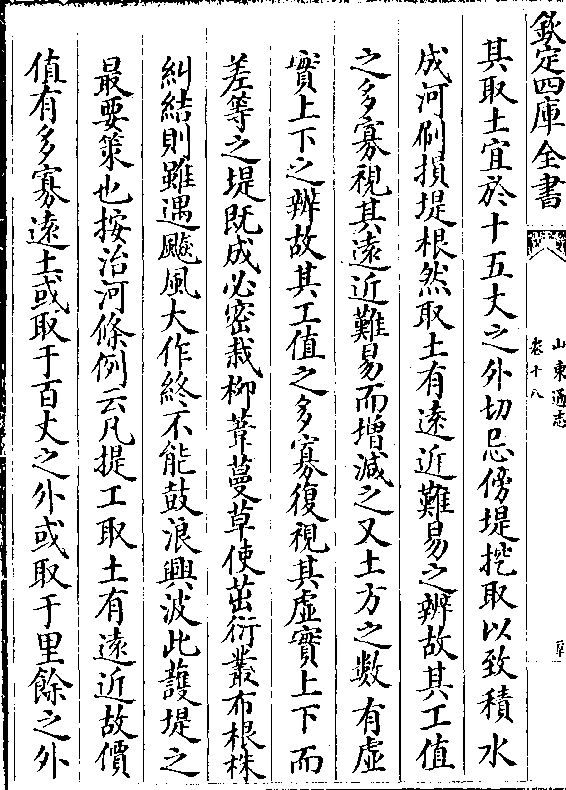 欽定四庫全書
山東通志
卷十八
其取土宜於十五丈之外切忌傍堤挖取以致積水
成河刷損堤根然取土有遠近難易之辨故其工值
之多寡視其遠近難易而增減之又土方之數有虛
實上下之辨故其工值之多寡復視其虛實上下而
差等之堤既成必密栽柳葦蔓草使茁衍叢布根株
糾結則雖遇颶風大作終不能鼓浪興波此護堤之
最要策也按治河條例云凡提工取土有遠近故價
值有多寡遠土或取于百丈之外或取于里餘之外